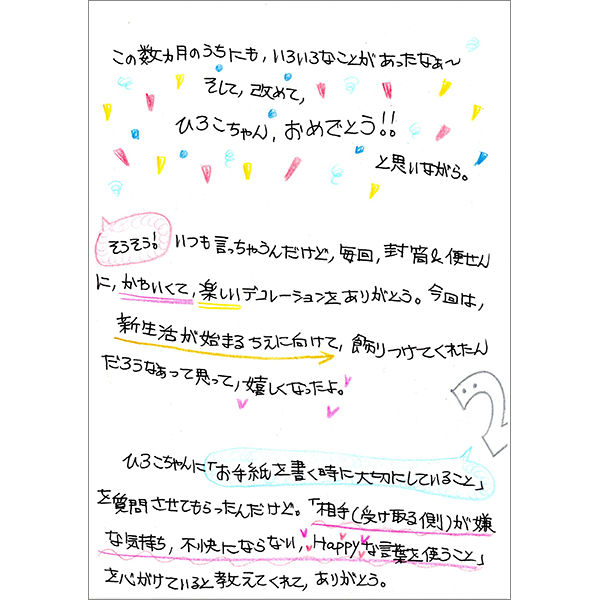 この数カ月のうちにも,いろいろなことがあったなぁ〜
そして,改めて,
ひろこちゃん,おめでとう!!
と思いながら。
そうそう! いつも言っちゃうんだけど,毎回,封筒&便せん
に,かわいくて,楽しいデコレーションをありがとう。今回は,
新生活が始まるちえに向けて,飾りつけてくれたん
だろうなぁって思って,嬉しくなったよ。
2
ひろこちゃんに「お手紙を書く時に大切にしていること」
を質問させてもらったんだけど。「相手(受け取る側)が嫌
な気持ち,不快にならない,Happyな言葉を使うこと」
を心がけていると教えてくれて,ありがとう。